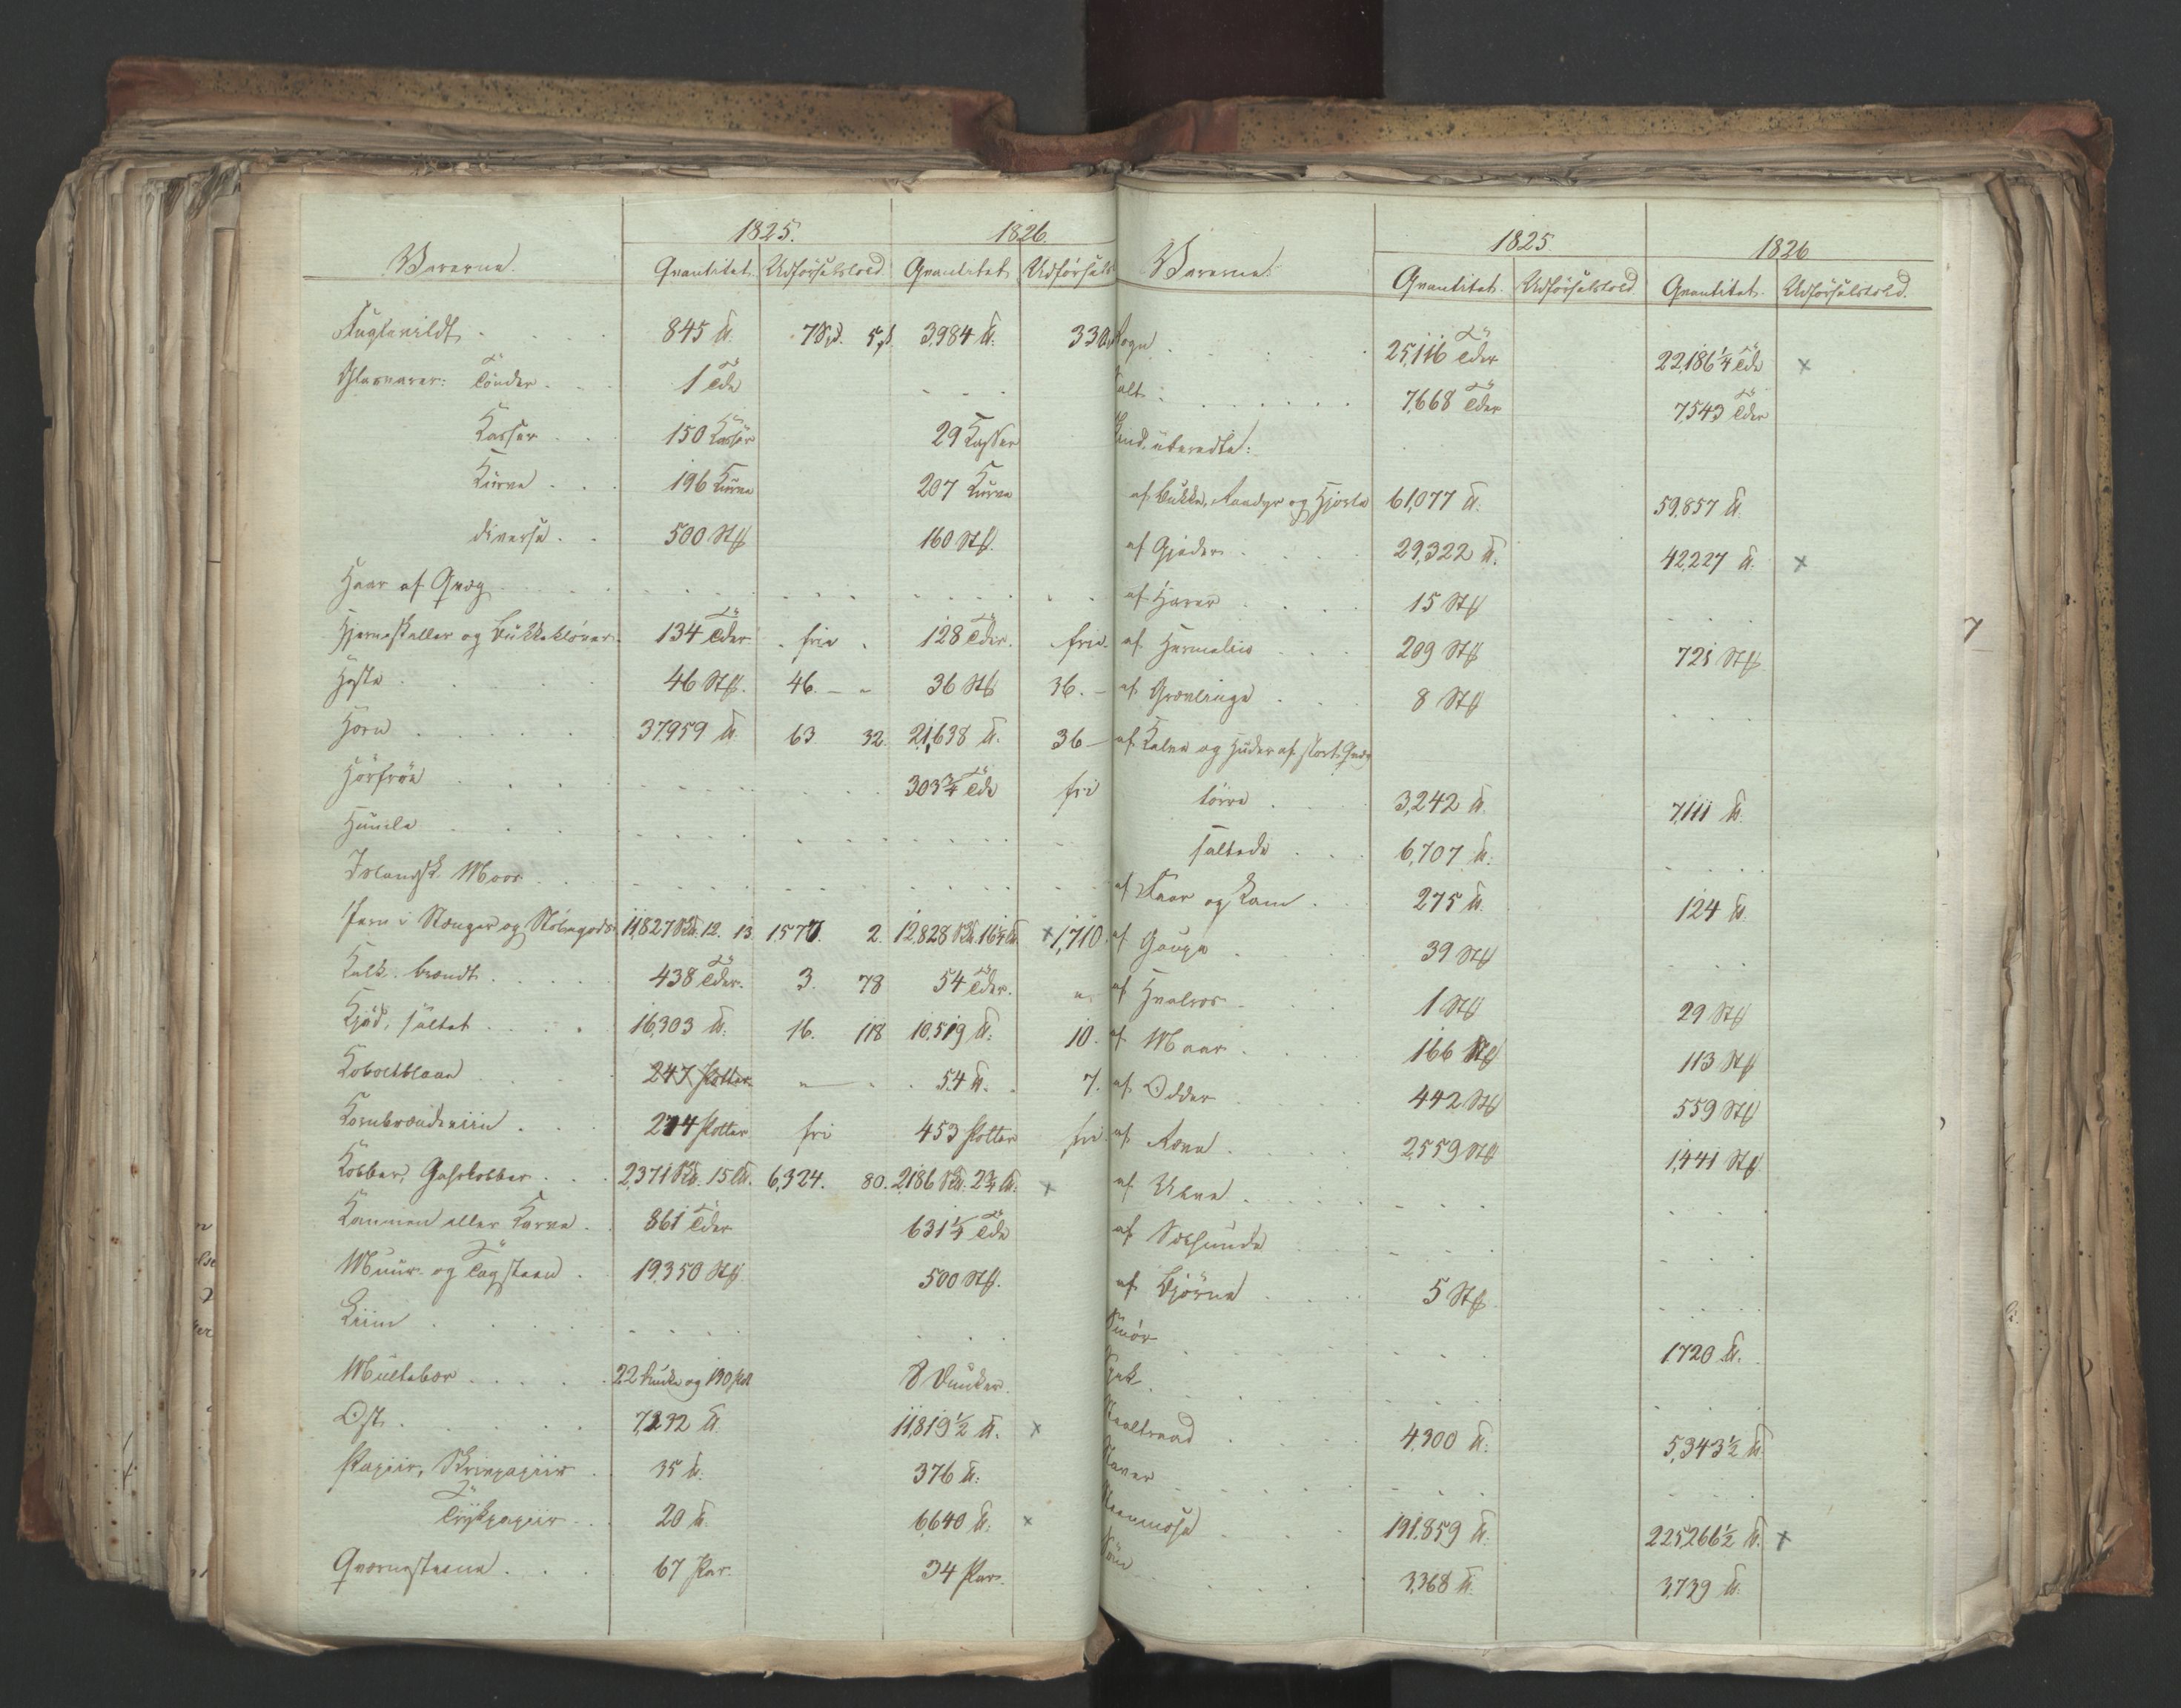 1825. 1826.
Varerne. Qvantitet. Udførselstold. Qvantitet. Udførsels
Fuglevildt . . . 845 ℔. 7 Spd. 5 ß. 3,984 ℔. 33
Glasvarer: Tønder . . 1 Tde - - -
Kasser . . 150 Kasser 29 Kasser
Kurve . . . 196 Kurve 207 Kurve
diverse . . 500 Stk 160 Stk.
Haar af Qvæg . . . .
Hjerneskaller og Bukkekløver. 134 Tder. fri 128 Tder. fri.
Heste . . . . 46 Stk. 46. — „ 36 Stk 36. —
Horn . . . . 37,959 ℔. 63 32. 21,638 ℔. 36 —
Hørfrøe . . . . 303¾ Tde fri
Humle . . . .
Islandsk Moos . . .
Jern i Stænger og Støbegods 11,827 Sk℔. 12. 13. 1,577. 2. 12,828 Sk℔ 16¼ ℔. × 1,710.
Kalk. brændt . . . . 438 Tder. 3. 78 54 Tder. „
Kjød, saltet . . . . 16,303 ℔. 16. 118 10,519 ℔. 10.
Koboltblaae . . . 247 Potter „ — 54 ℔. 7.
Kornbrændeviin . . . 274 Potter fri 453 Potter fri.
Kobber, Gahrkobber . . . 2,371 Sk℔. 15 ℔. 6,324. 80. 2,186 Sk℔. 2¾ ℔. ×
Kommen eller Karve . . 861 Tder 631¼ Tde
Muur- og Tagsteen . 19,350 Stk. 500 Stk.
Liim . . . .
Multebær . . . . . 22 Dunke og 190 Pot 8 Dunker.
Ost . . . . 7,232 ℔. 11,819½ ℔. ×
Papiir, Skrivpapiir . 35 ℔. 376 ℔.
Trykpapiir . . 20 ℔. 6,640 ℔. ×
Qværnsteene . . . 67 Par. 34 Par.
1825 1826
Varerne. Qvantitet. Udførselstold. Qvantitet. Udførselstold.
Rogn . . . . 25,116 Tder 22,186¼ Tde ×
Salt . . . . 7,668 Tder 7,543 Tder
Skind, uberedte:
af Bukke, Raadyr og Hjorte 61,077 ℔. 59,857 ℔.
af Gjeder . . . 29,322 ℔. 42,227 ℔. ×
af Harer . . . 15 Stk . . .
af Hermelin . . . 209 Stk 721 Stk
af Grævlinge . . . 8 Stk . . .
af Kalve og Huder af stort Qvæg
tørre . . . 3,242 ℔. 7,111 ℔.
saltede . . . 6,707 ℔. . . . .
af Faar og Lam . . 275 ℔. 124 ℔.
af Gaupe . . . 39 Stk . . .
af Hvalros . . . 1 Stk 29 Stk
af Maar . . . 166 Stk 113 Stk
af Odder . . . 442 Stk 559 Stk
af Ræve . . . . 2,559 Stk 1,441 Stk
af Ulve . . . .
af Sælhunde . . .
af Bjørne . . . 5 Stk . . .
Smør . . . . 1,720 ℔.
. . . .
Staaltraad . . . 4,300 ℔. 5,343½ ℔.
. . . .
Steenmose . . . 191,859 ℔. 225,266½ ℔. ×
. . . . 3,368 ℔. 3,739 ℔.